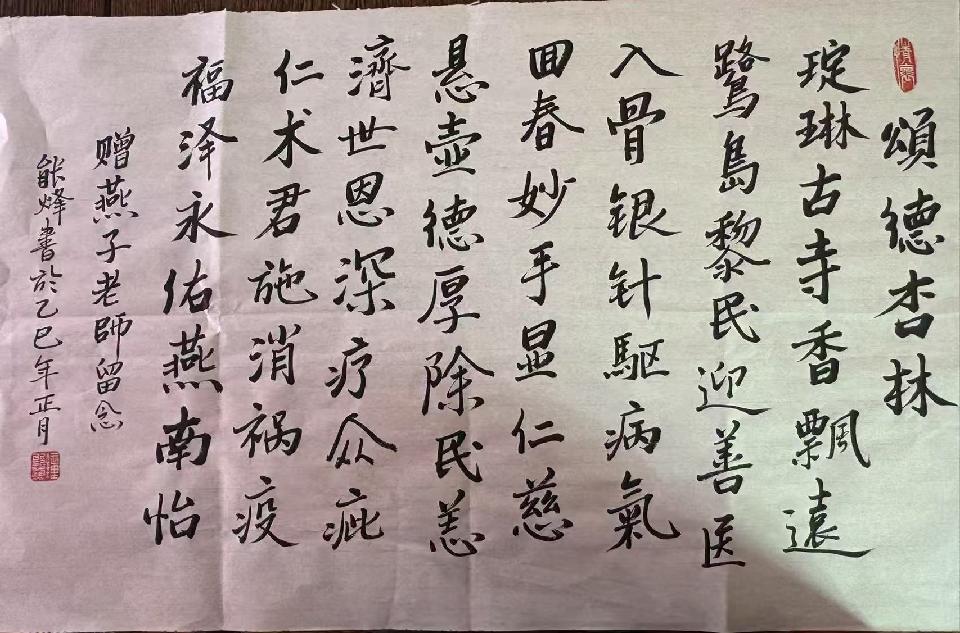 頌德杏林
琔琳古寺香飄遠
鷺島黎民迎善医
入骨银针驱病氣
回春妙手显仁慈
悬壶德厚除民恙
濟世恩深疗众疵
仁术君施消祸疫
福泽永佑燕南怡
赠燕子老師留念
能烽書於乙巳年正月